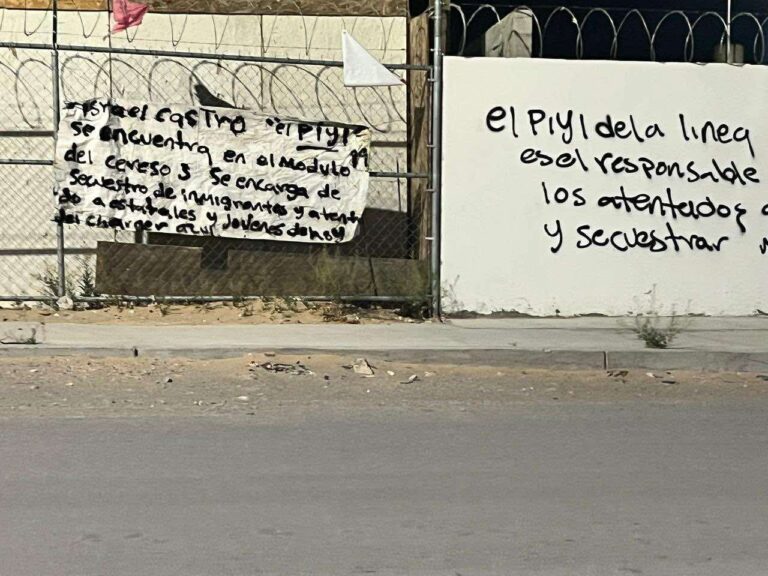 Israel Castro "el PIYI"
se encuentra en el Modulo
del cereso 3 se encarga de
secuestro de inmigrantes y atenta
do a estatales y Jovenes de hoy
del charger azul
el PIYI de la linea
es el responsable
los atentados
y secuestrar